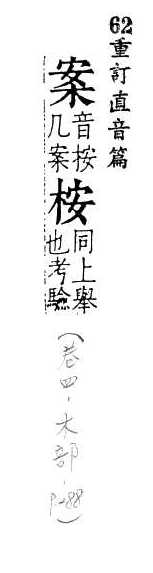 62重訂直音篇
案音按几案桉同上舉也考驗
(卷四·木部·P.188)